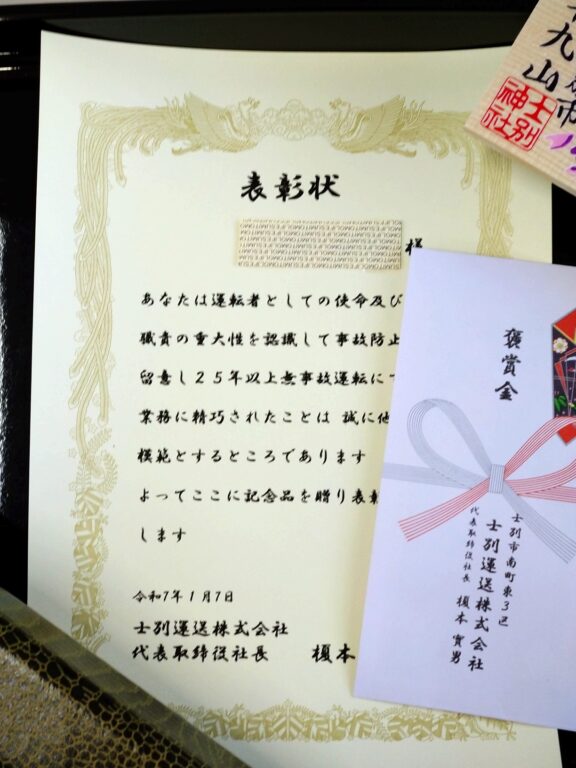 表彰状
様
あなたは運転者としての使命及び
職責の重大性を認識して事故防止
留意し25年以上無事故運転に
業務に精巧されたことは 誠に他
模範とするところであります
よってここに記念品を贈り表彰
します
令和7年1月7日
士別運送株式会社
代表取締役社長 榎本
褒賞金
士別市南町東3区
士別運送株式会社
代表取締役社長 榎本 實男
九山
市
士別
神社